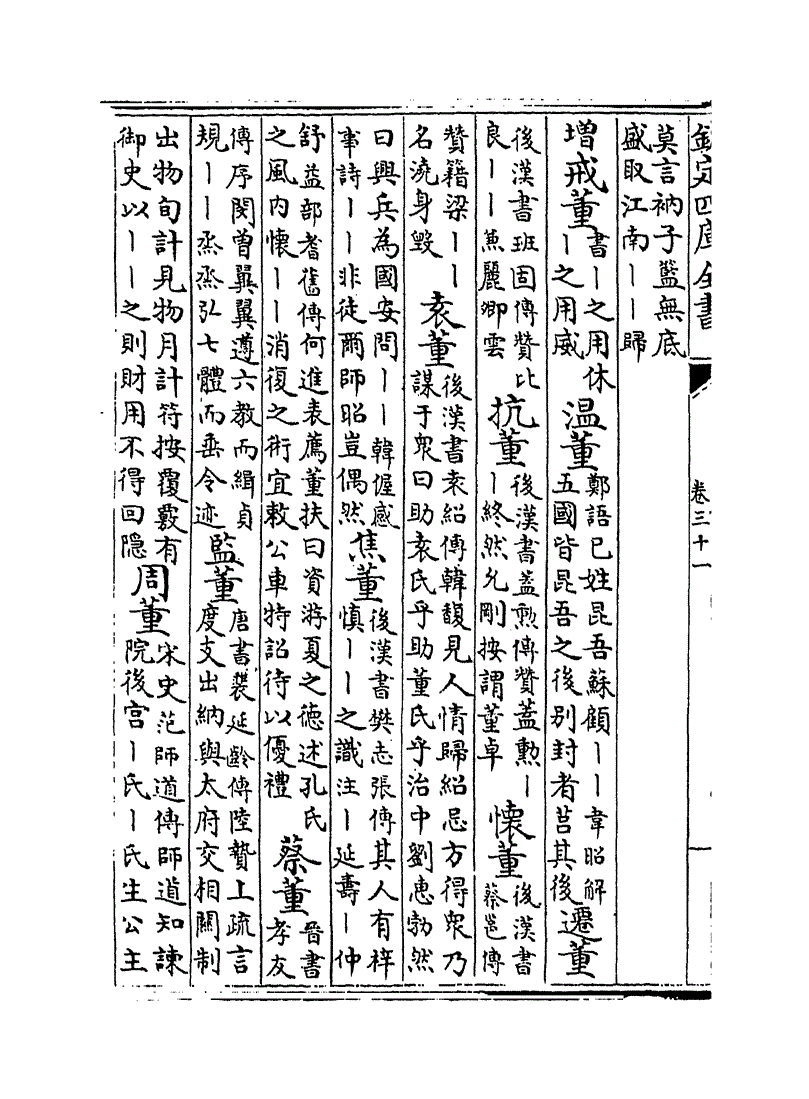 欽定四庫全書
卷三十一
莫言衲子籃無底
盛取江南丨丨歸
增戒董
書丨之用休
丨之用威
温董
鄭語已姓昆吾蘇顧丨丨韋昭解
五國皆昆吾之後别封者莒其後
遷董
後漢書班固傳贊比
良丨丨蕙麗卿雲
抗董
後漢書蓋勲傳贊蓋勲丨
丨終然允剛按謂董卓
懷董
後漢書
蔡邕傳
贊籍梁丨丨
名澆身毁
袁董
後漢書袁紹傳韓馥見人情歸紹忌方得衆乃
謀于衆曰助袁氏乎助董氏乎治中劉惠勃然
曰興兵為國安問丨丨韓偓感
事詩丨丨非徒爾師昭豈偶然
焦董
後漢書樊志張傳其人有梓
慎丨丨之識注丨延壽丨仲
舒益部耆舊傳何進表薦董扶曰資游夏之德述孔氏
之風内懷丨丨消復之術宜敕公車特詔待以優禮
蔡董
晉書
孝友
傳序閔曾翼翼遵六教而緝貞
規丨丨烝烝弘七體而垂令迹
監董
唐書裴延齡傳陸贄上疏言
度支出納與太府交相關制
出物旬計見物月計符按覆覈有
御史以丨丨之則財用不得回隱
周董
宋史范師道傳師道知諫
院後宫丨氏丨氏生公主